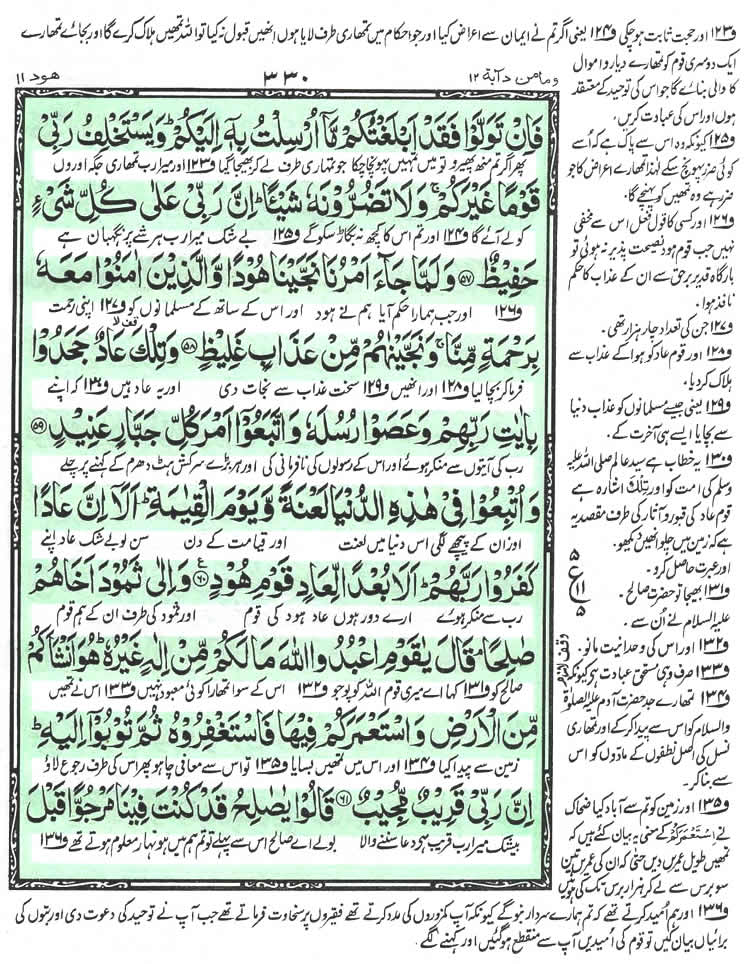 و۱۲۳ اور حجت ثابت ہوچکی و۱۲۴ یعنی اگر تم نے ایمان سے اعراض کیا اور جو احکام میں تمھاری طرف لایا ہوں انھیں قبول نہ کیا تو اللہ تمھیں ہلاک کرے گا اور بجائے تمھارے
ھود ۱۱
۳۳۰
وما من دآبۃ ۱۲
فَاِنۡ تَوَلَّوۡا فَقَدۡ اَبۡلَغۡتُكُمۡ مَّاۤ اُرۡسِلۡتُ بِهٖۤ اِلَيۡكُمۡ ؕ وَيَسۡتَخۡلِفُ رَبِّىۡ
پھر اگر تم منھ پھیرو تو میں تمہیں پہونچا چکا جو تمہاری طرف لے کر بھیجا گیا و۱۲۳ اور میرا رب تمھاری جگہ اوروں
قَوۡمًا غَيۡرَكُمۡ ۚ وَلَا تَضُرُّوۡنَهٗ شَيۡـًٔا ؕ اِنَّ رَبِّىۡ عَلٰى كُلِّ شَىۡءٍ
کو لے آئے گا و۱۲۴ اور تم اس کا کچھ نہ بگاڑ سکو گے و۱۲۵ بے شک میرا رب ہر شے پر نگہبان ہے
حَفِيۡظٌ ﴿۵۷﴾ وَلَمَّا جَآءَ اَمۡرُنَا نَجَّيۡنَا هُوۡدًا وَّالَّذِيۡنَ اٰمَنُوۡا مَعَهٗ
و۱۲۶ اور جب ہمارا حکم آیا ہم نے ہود اور اس کے ساتھ کے مسلمانوں کو و۱۲۷ اپنی رحمت
بِرَحۡمَةٍ مِّنَّا ۚ وَنَجَّيۡنٰهُمۡ مِّنۡ عَذَابٍ غَلِيۡظٍ ﴿۵۸﴾ وَتِلۡكَ عَادٌ ۟ جَحَدُوۡا
فرما کر بچا لیا و۱۲۸ اور انھیں و۱۲۹ سخت عذاب سے نجات دی اور یہ عاد ہیں و۱۳۰ کہ اپنے
بِاٰيٰتِ رَبِّهِمۡ وَعَصَوۡا رُسُلَهٗ وَاتَّبَعُوۡۤا اَمۡرَ كُلِّ جَبَّارٍ عَنِيۡدٍ ﴿۵۹﴾
رب کی آیتوں سے منکر ہوئے اور اس کے رسولوں کی نافرمانی کی اور ہر بڑے سرکش ہٹ دھرم کے کہنے پر چلے
وَاُتۡبِعُوۡا فِىۡ هٰذِهِ الدُّنۡيَا لَعۡنَةً وَّيَوۡمَ الۡقِيٰمَةِ ؕ اَلَاۤ اِنَّ عَادًا
اور ان کے پیچھے لگی اس دنیا میں لعنت اور قیامت کے دن سن لو بے شک عاد اپنے
كَفَرُوۡا رَبَّهُمۡ ؕ اَلَا بُعۡدًا لِّعَادٍ قَوۡمِ هُوۡدٍ ﴿۶۰﴾ وَاِلٰى ثَمُوۡدَ اَخَاهُمۡ
رب سے منکر ہوئے ارے دور ہوں عاد ہود کی قوم اور ثمود کی طرف ان کے ہم قوم
صٰلِحًا ۘ قَالَ يٰقَوۡمِ اعۡبُدُوا اللّٰهَ مَا لَكُمۡ مِّنۡ اِلٰهٍ غَيۡرُهٗ ؕ هُوَ اَنۡشَاَكُمۡ
صالح کو و۱۳۱ کہا اے میری قوم اللہ کو پوجو و۱۳۲ اس کے سوا تمھارا کوئی معبود نہیں و۱۳۳ اس نے تمھیں
مِّنَ الۡاَرۡضِ وَاسۡتَعۡمَرَكُمۡ فِيۡهَا فَاسۡتَغۡفِرُوۡهُ ثُمَّ تُوۡبُوۡۤا اِلَيۡهِ ؕ
زمین سے پیدا کیا و۱۳۴ اور اس میں تمھیں بسایا و۱۳۵ تو اس سے معافی چاہو پھر اس کی طرف رجوع لاؤ
اِنَّ رَبِّىۡ قَرِيۡبٌ مُّجِيۡبٌ ﴿۶۱﴾ قَالُوۡا يٰصٰلِحُ قَدۡ كُنۡتَ فِيۡنَا مَرۡجُوًّا قَبۡلَ
بیشک میرا رب قریب ہے دعا سننے والا بولے اے صالح اس سے پہلے تو تم ہم میں ہونہار معلوم ہوتے تھے و۱۳۶
ایک دوسری قوم کو تمھارے دیار و اموال
کا والی بنائے گا جو اس کی توحید کے معتقد
ہوں اور اس کی عبادت کریں۔
و۱۲۵ کیونکہ وہ اس سے پاک ہے کہ اُسے
کوئی ضرر پہونچ سکے لہٰذا تمھارے اعراض کا جو
ضرر ہے وہ تمھیں کو پہنچے گا۔
و۱۲۶ اور کسی کا قول فعل اس سے مخفی
نہیں جب قوم ہود نصیحت پذیر نہ ہوئی تو
بارگاہ قدیر برحق سے ان کے عذاب کا حکم
نافذ ہوا۔
و۱۲۷ جن کی تعداد چار ہزار تھی۔
و۱۲۸ اور قوم عاد کو ہوا کے عذاب سے
ہلاک کر دیا۔
و۱۲۹ یعنی جیسے مسلمانوں کو عذاب دنیا
سے بچایا ایسے ہی آخرت کے۔
و۱۳۰ یہ خطاب ہے سید عالم صلی اللہ علیہ
وسلم کی امت کو اور تِلْكَ اشارہ ہے
قوم عاد کی قبور و آثار کی طرف مقصد یہ
ہے کہ زمین میں چلو انھیں دیکھو۔
اور عبرت حاصل کرو۔
و۱۳۱ بھیجا تو حضرت صالح
علیہ السلام نے اُن سے۔
۵
ع
۱۱
۵
و۱۳۲ اور اس کی وحدانیت مانو۔
و۱۳۳ صرف وہی مستحق عبادت ہے کیونکہ
و۱۳۴ تمھارے جد حضرت آدم علیہ الصلوٰۃ
والسلام کو اس سے پیدا کر کے اور تمھاری
نسل کی اصل نطفوں کے مادّوں کو اس
سے بنا کر۔
و۱۳۵ اور زمین کو تم سے آباد کیا ضحاک
نے اسْتَعْمَرَكُمْ کے معنی یہ بیان کئے ہیں کہ
تمھیں طویل عمریں دیں حتیٰ کہ ان کی عمریں تین
سو برس سے لے کر ہزار برس تک کی ہوئیں
و۱۳۶ اور ہم اُمید کرتے تھے کہ تم ہمارے سردار بنو گے کیونکہ آپ کمزوروں کی مدد کرتے تھے فقیروں پر سخاوت فرماتے تھے جب آپ نے توحید کی دعوت دی اور بتوں کی
برائیاں بیان کیں تو قوم کی اُمیدیں آپ سے منقطع ہوگئیں اور کہنے لگے۔